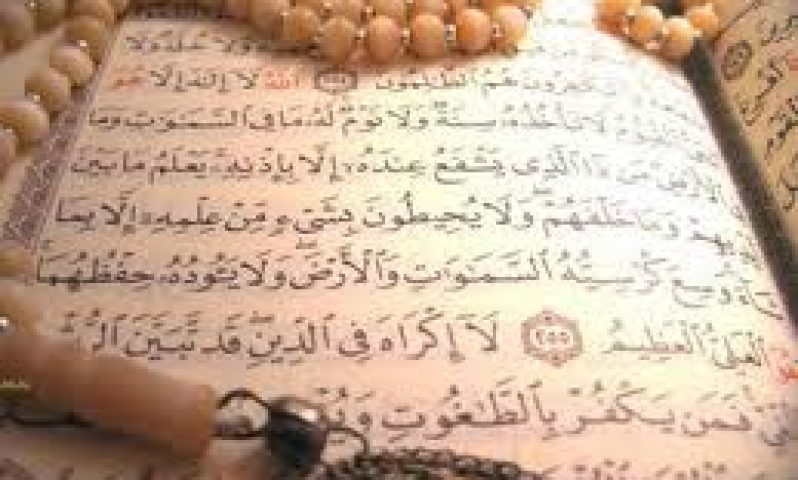 وَلَا خُلَّةٌ وَلَا
هُمُ ٱلظَّٰلِمُونَ ٢٥٤ ٱللَّهُ لَآ إِلَٰهَ إِلَّا هُوَ
ٱلْقَيُّومُ لَا تَأْخُذُهُۥ سِنَةٌ وَلَا نَوْمٌ لَّهُۥ مَا فِى ٱلسَّمَٰوَٰتِ وَمَا
ٱلْأَرْضِ مَن ذَا ٱلَّذِى يَشْفَعُ عِندَهُۥٓ إِلَّا بِإِذْنِهِۦ يَعْلَمُ مَا بَيْنَ
وَمَا خَلْفَهُمْ وَلَا يُحِيطُونَ بِشَىْءٍ مِّنْ عِلْمِهِۦٓ إِلَّا بِمَا
شَآءَ وَسِعَ كُرْسِيُّهُ ٱلسَّمَٰوَٰتِ وَٱلْأَرْضَ وَلَا يَـُٔودُهُۥ حِفْظُهُمَا
ٱلْعَلِىُّ ٱلْعَظِيمُ ٢٥٥ لَآ إِكْرَاهَ فِى ٱلدِّينِ قَد تَّبَيَّنَ
فَمَن يَكْفُرْ بِٱلطَّٰغُوتِ